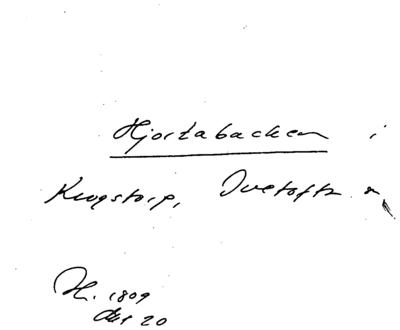 Hjortabacken i
Krogstorp, Ivetofta
H. 1809
20